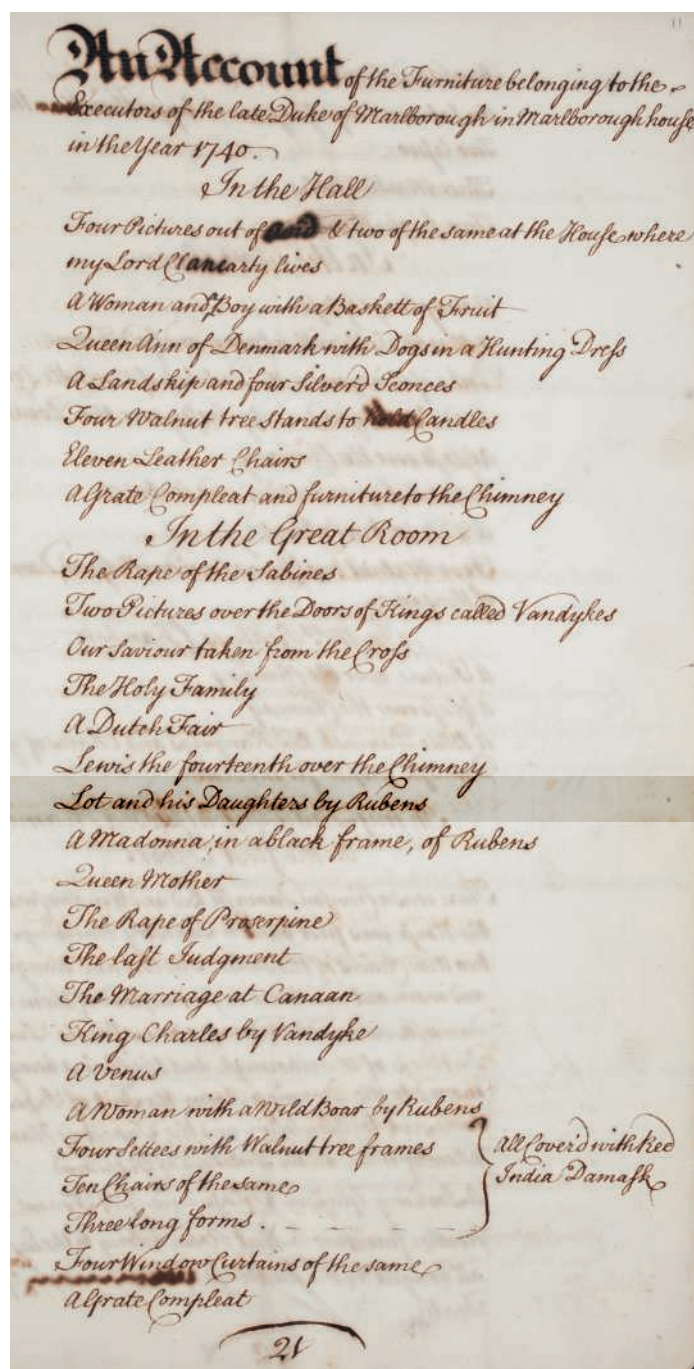 11
An Account of the Furniture belonging to the
Executors of the late Duke of Marlborough in Marlborough house
in the Year 1740.
In the Hall
Four Pictures out of & two of the same at the House where
my Lord Clancarty lives
A Woman and Boy with a Baskett of Fruit
Queen Ann of Denmark with Dogs in a Hunting Dress
A Landskip and four Silver'd Sconces
Four Walnut tree Stands to hold Candles
Eleven Leather Chairs
A Grate Compleat and furniture to the Chimney
In the Great Room
The Rape of the Sabines
Two Pictures over the Doors of Kings called Vandykes
Our Saviour taken from the Cross
The Holy Family
A Dutch Fair
Lewis the fourteenth over the Chimney
Lot and his Daughters by Rubens
A Madonna, in a black frame, of Rubens
Queen Mother
The Rape of Proserpine
The last Judgment
The Marriage at Canaan
King Charles by Vandyke
A Venus
A Woman with a Wild Boar by Rubens
Four Settees with Walnut tree frames
Ten Chairs of the same
Three long forms .
All Cover'd with Red
India Damask
Four Window Curtains of the same
A Grate Compleat
21